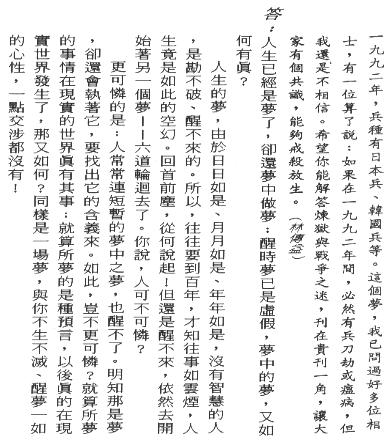 一九九二年，兵種有日本兵、韓國兵等。這個夢，我已問過好多位相
士，有一位算了說：如果在一九九二年間，必然有兵刀劫或瘟病，但
我還是不相信。希望你能解答煉獄與戰爭之迷，刊在貴刊一角，讓大
家有個共識，能夠戒殺放生。（林傳益）
答：人生已經是夢了，卻還夢中做夢；醒時夢已是虛假，夢中的夢，又如
何有眞？
人生的夢，由於日日如是、月月如是、年年如是，沒有智慧的人
，是勘不破、醒不來的。所以，往往要到百年，才知往事如雲煙，人
生竟是如此的空幻。回首前塵，從何說起！但還是醒不來，依然去開
始著另一個夢——六道輪迴去了。你說，人可不可憐？
更可憐的是：人常常連短暫的夢中之夢，也醒不了。明知那是夢
，卻還會執著它，要找出它的含義來。如此，豈不更可憐？就算所夢
的事情在現實的世界眞有其事；就算所夢的是種預言，以後眞的在現
實世界發生了，那又如何？同樣是一場夢，與你不生不滅、醒夢一如
的心性，一點交涉都沒有！